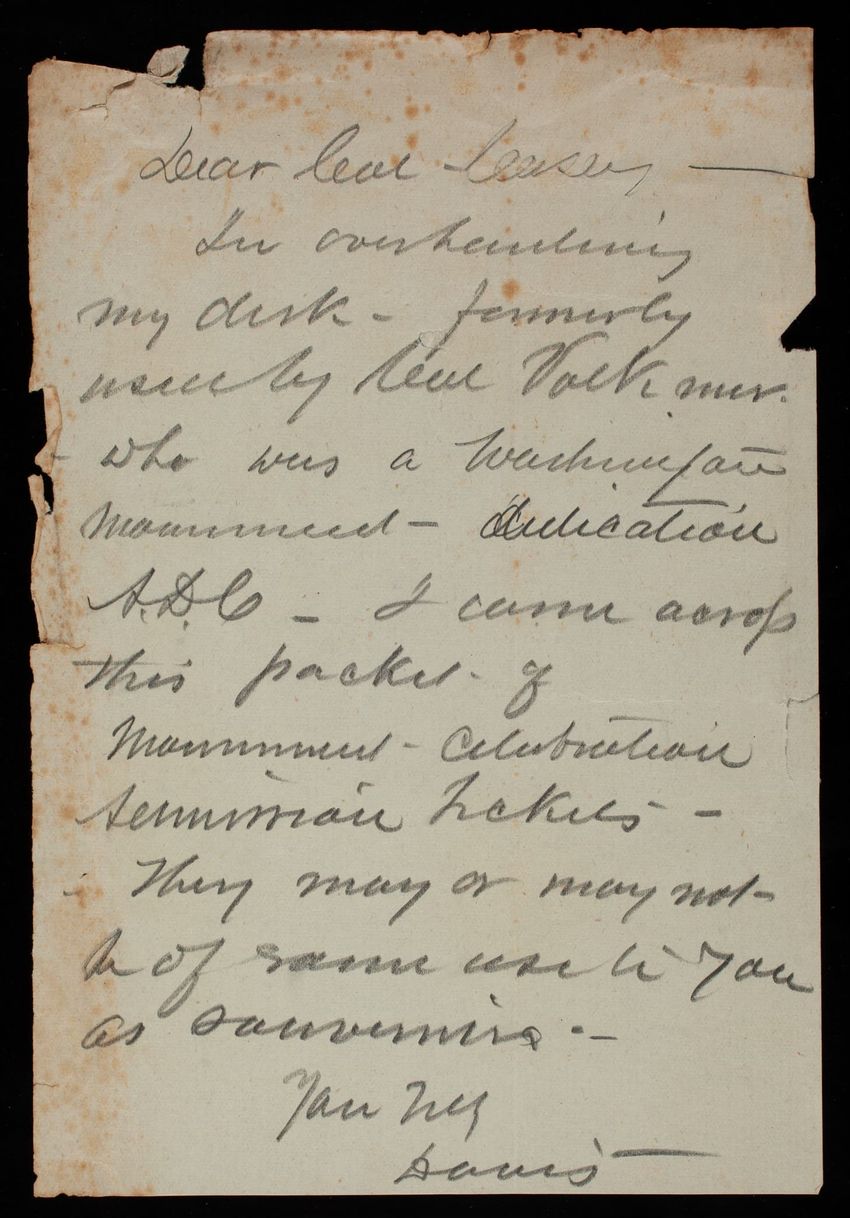 Dear Col Casey —
In overhauling
my desk - formerly
used by Col Volkmar.
who was a Washington
Monument - dedication
A.D.C - I came across
this packet of
Monument - Celebration
Admission tickets -
They may or may not
be of some use to you
as souvenirs. -
Davis